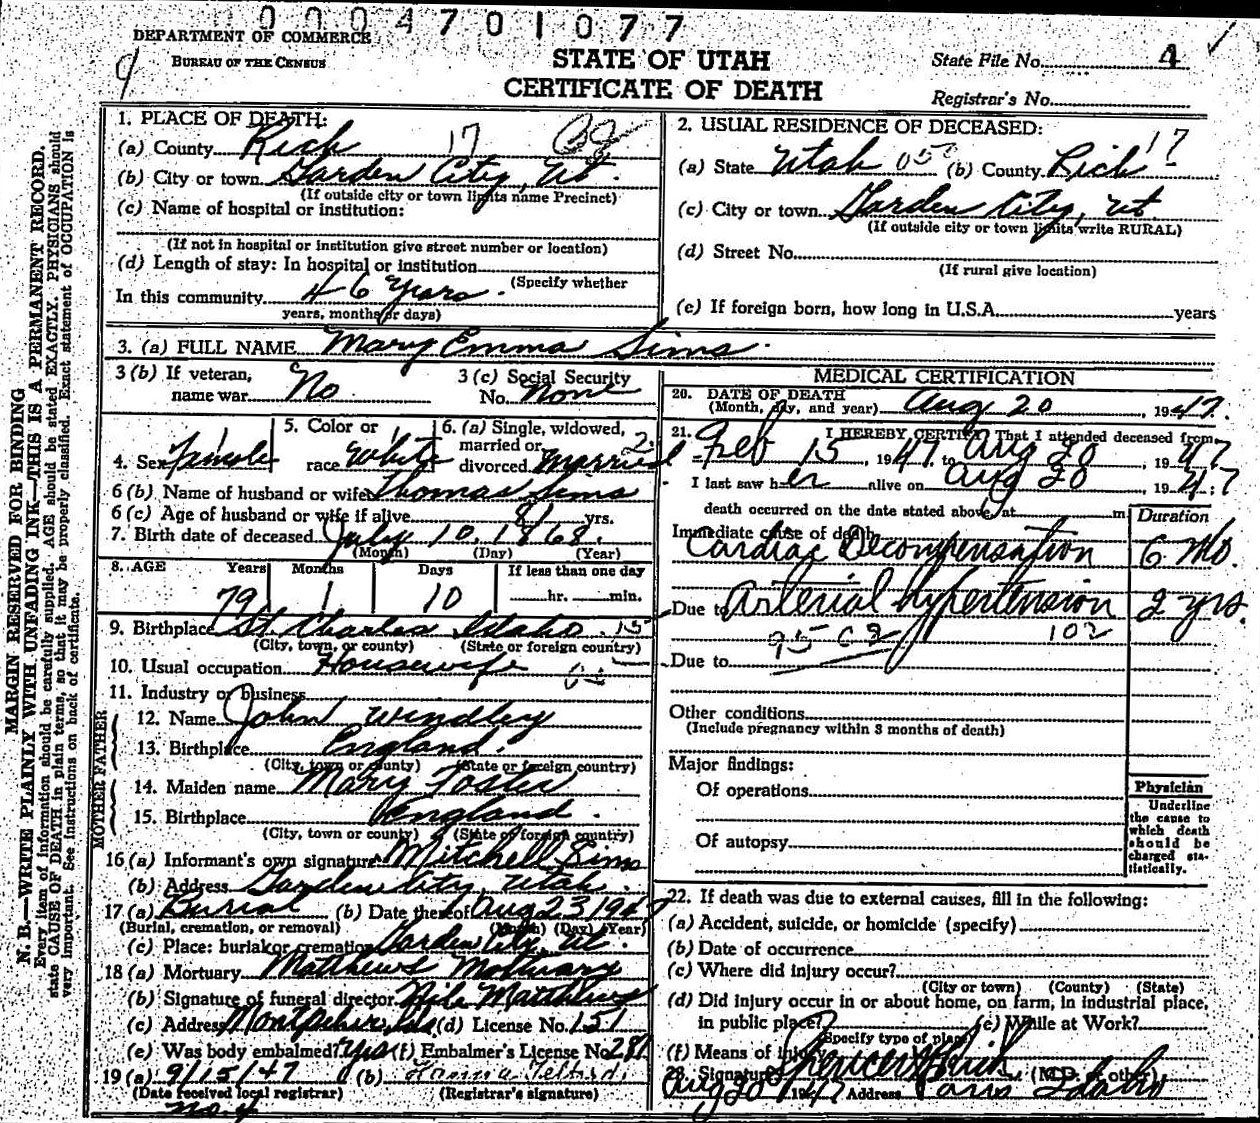 0 0 0 4 7 0 1 0 7 7
DEPARTMENT OF COMMERCE
BUREAU OF THE CENSUS
9
STATE OF UTAH
CERTIFICATE OF DEATH
State File No. 4
Registrar's No.
MARGIN RESERVED FOR BINDING
N. B.—WRITE PLAINLY WITH UNFADING INK—THIS IS A PERMANENT RECORD.
Every item of information should be carefully supplied. AGE should be stated EXACTLY. PHYSICIANS should
state CAUSE OF DEATH in plain terms, so that it may be properly classified. Exact statement of OCCUPATION is
very important. See instructions on back of certificate.
1. PLACE OF DEATH:
(a) County Rich 17
(b) City or town Garden City, Ut.
(If outside city or town limits name Precinct)
(c) Name of hospital or institution:
(If not in hospital or institution give street number or location)
(d) Length of stay: In hospital or institution
(Specify whether
In this community 46 years.
years, months or days)
2. USUAL RESIDENCE OF DECEASED:
(a) State Utah 050 (b) County Rich 17
(c) City or town Garden City, Ut
(If outside city or town limits write RURAL)
(d) Street No.
(If rural give location)
(e) If foreign born, how long in U.S.A. years
3. (a) FULL NAME Mary Emma Sims
3 (b) If veteran, name war No
3 (c) Social Security No. None
4. Sex Female
5. Color or race White
6. (a) Single, widowed, married or divorced Married 2
6 (b) Name of husband or wife Thomas Sims
6 (c) Age of husband or wife if alive 81 yrs.
7. Birth date of deceased July 10, 1868.
(Month) (Day) (Year)
8. AGE Years Months Days If less than one day
79 1 10 hr. min.
9. Birthplace St. Charles Idaho. 15
(City, town, or county) (State or foreign country)
10. Usual occupation Housewife
11. Industry or business
FATHER
12. Name John Windley
13. Birthplace England.
(City, town or county) (State or foreign country)
MOTHER
14. Maiden name Mary Foster
15. Birthplace England.
(City, town or county) (State or foreign country)
16 (a) Informant's own signature Mitchell Sims
(b) Address Garden City, Utah.
17 (a) Burial (b) Date thereof Aug 23 1947
(Burial, cremation, or removal) (Month) (Day) (Year)
(c) Place: burial or cremation Garden City, Ut.
18 (a) Mortuary Matthews Mortuary
(b) Signature of funeral director Matthews
(c) Address Montpelier, Ida (d) License No. 151
(e) Was body embalmed? Yes (f) Embalmer's License No. 281
19 (a) 9/15/47 (b)
(Date received local registrar) (Registrar's signature)
no. 4
MEDICAL CERTIFICATION
20. DATE OF DEATH
(Month, day, and year) Aug 20, 1947.
21. I HEREBY CERTIFY That I attended deceased from
Feb 15, 1947, to Aug 20, 1947
I last saw her alive on Aug 20, 1947
death occurred on the date stated above, at m
Duration
Immediate cause of death
Cardiac Decompensation 6 Mo.
Due to Arterial hypertension 2 yrs.
95 C 2 102
Due to
Other conditions
(Include pregnancy within 3 months of death)
Major findings:
Of operations
Of autopsy
Physician
Underline
the cause to
which death
should be
charged sta-
tistically.
22. If death was due to external causes, fill in the following:
(a) Accident, suicide, or homicide (specify)
(b) Date of occurrence
(c) Where did injury occur?
(City or town) (County) (State)
(d) Did injury occur in or about home, on farm, in industrial place,
in public place? (e) While at Work?
(Specify type of place)
(f) Means of injury
23. Signature Spencer Rich (M.D. or other)
Aug 20 1947 Address Paris Idaho